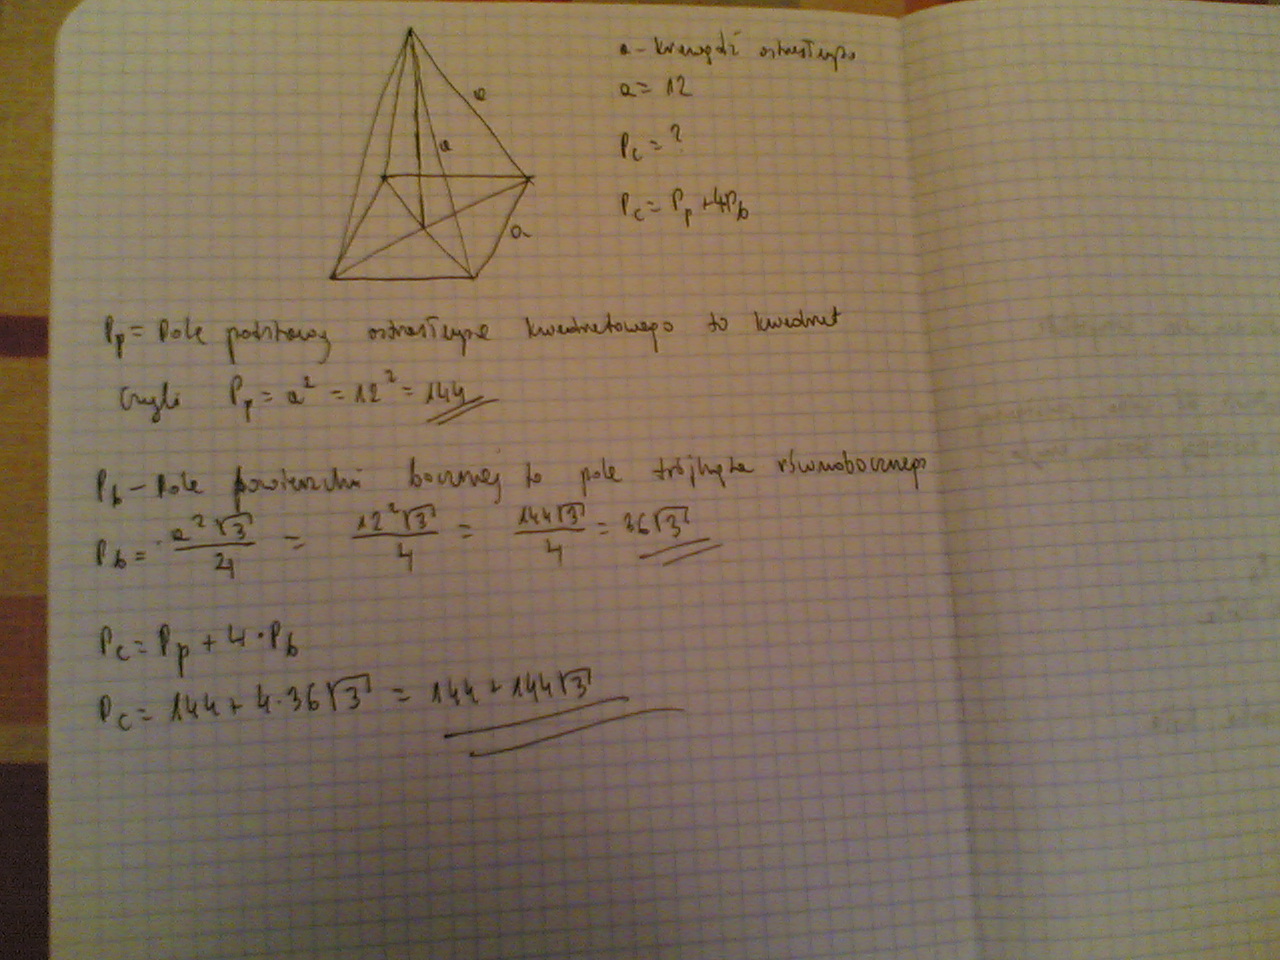 a - krawędź ostrosłupa
a = 12
Pc = ?
Pc = Pp + 4Pb
a
a
a
Pp = Pole podstawy ostrosłupa kwadratowego to kwadrat
czyli Pp = a² = 12² = 144
Pb - Pole powierzchni bocznej to pole trójkąta równobocznego
Pb = a²√3/4 = 12²√3/4 = 144√3/4 = 36√3
Pc = Pp + 4 · Pb
Pc = 144 + 4 · 36√3 = 144 + 144√3